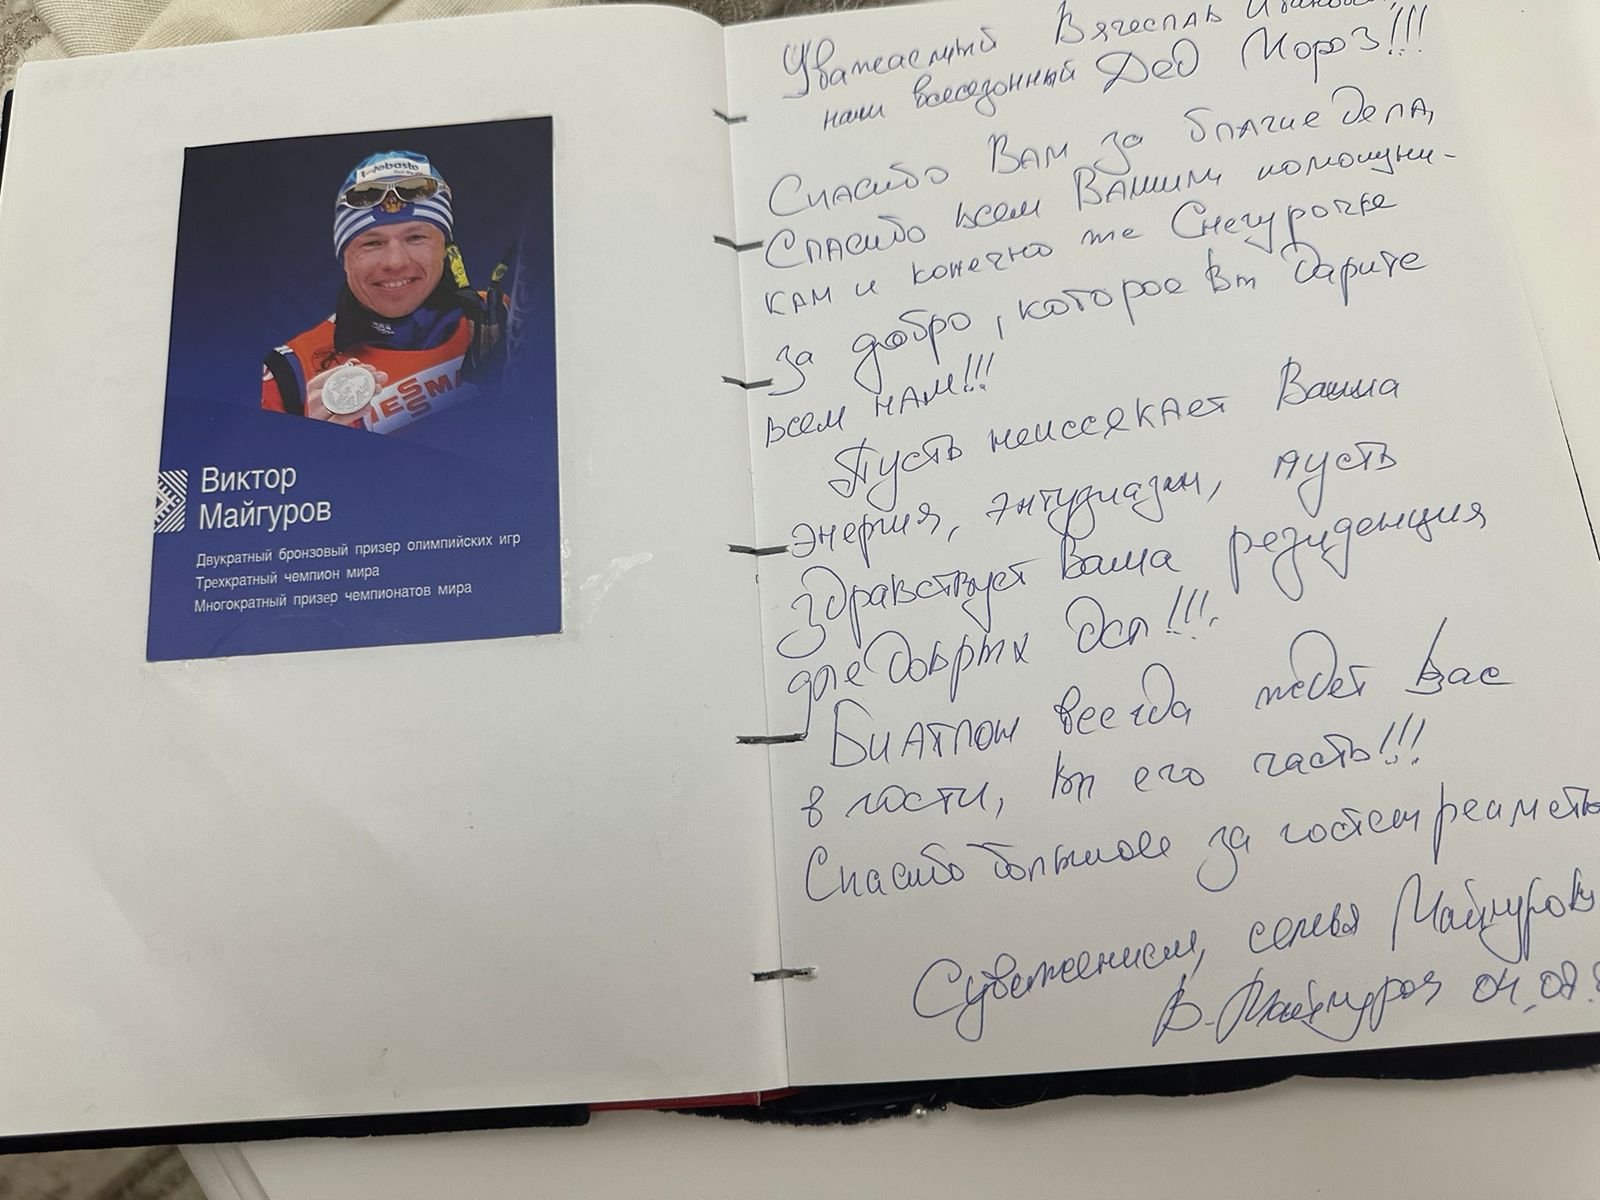 Webasto
VIESMANN
Виктор
Майгуров
Двукратный бронзовый призер олимпийских игр
Трехкратный чемпион мира
Многократный призер чемпионатов мира
Уважаемый Вячеслав
наш всесезонный Дед Мороз!!!
Спасибо Вам за благие дела,
Спасибо всем Вашим помощни-
кам и конечно же Снегурочке
за добро, которое Вы дарите
всем нам!!!
Пусть неиссекает Ваша
энергия, энтузиазм, пусть
здравствует Ваша резиденция
для добрых дел!!!
Биатлон всегда ждет Вас
в гости, Вы его часть!!!
Спасибо большое за гостеприимство
С уважением, семья Майгуровы
В. Майгуров 04.08.